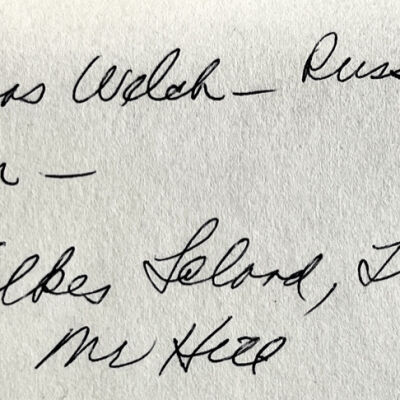 as Welch – Russ
n –
lkes Leland, I
Mr Hill